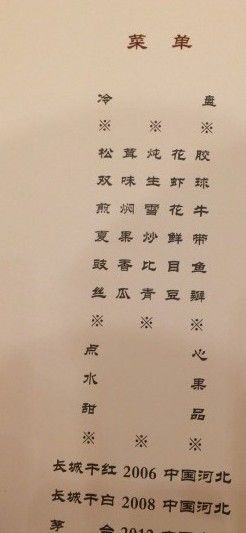 菜 单
冷 盘
※ ※ ※
松 茸 炖 花 胶
双 味 生 虾 球
煎 焖 雪 花 牛
夏 果 炒 鲜 带
豉 香 比 目 鱼
丝 瓜 青 豆 瓣
※ ※ ※
点 心
水 果
甜 品
※ ※ ※
长城干红 2006 中国河北
长城干白 2008 中国河北
茅 台 2012